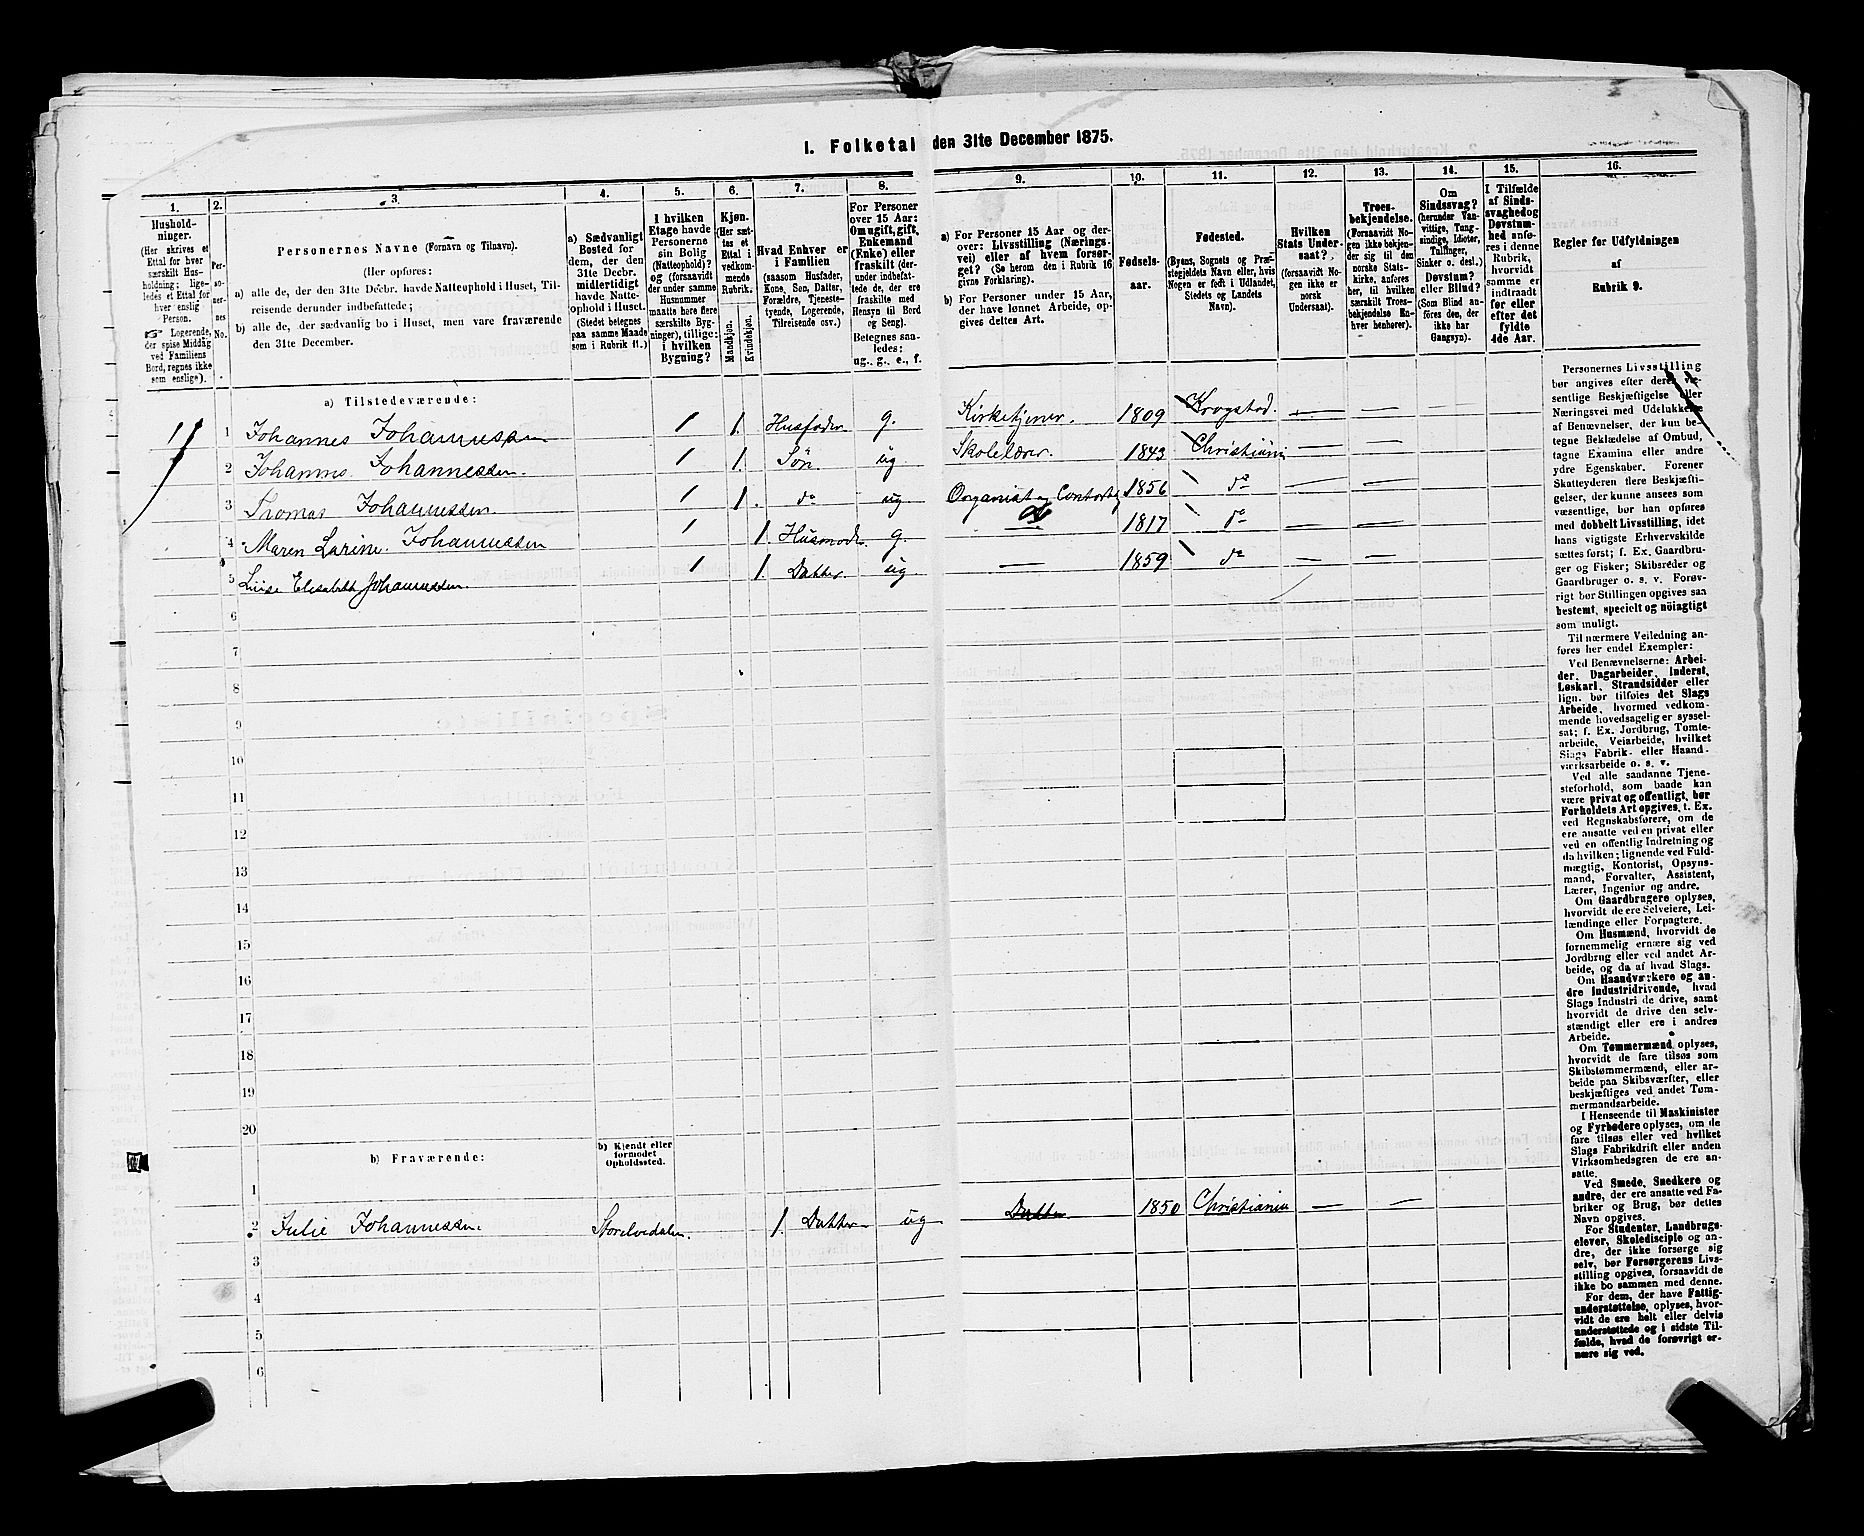 1. Folketal den 31te December 1875.
1. 2. 3. 4. 5. 6. 7. 8. 9. 10. 11. 12. 13. 14. 15. 16.
Hushold-
ninger.
(Her skrives et
Ettal for hver
særskilt Hus-
holdning; lige-
ledes et Ettal for
hver enslig
Person.
☞ Logerende,
der spise Middag
ved Familiens
Bord, regnes ikke
som enslige).
Per-
so-
ner-
nes
No.
Personernes Navne (Fornavn og Tilnavn).
(Her opføres:
a) alle de, der den 31te Decbr. havde Natteophold i Huset, Til-
reisende derunder indbefattede;
b) alle de, der sædvanlig bo i Huset, men vare fraværende
den 31te December.
a) Sædvanligt
Bosted for
dem, der den
31te Decbr.
midlertidigt
havde Natte-
ophold i Huset.
(Stedet betegnes
paa samme Maade
som i Rubrik 11.)
I hvilken
Etage havde
Personerne
sin Bolig
(Natteophold)?
og (forsaavidt
der under samme
Husnummer
maatte høre flere
særskilte Byg-
ninger), tillige:
i hvilken
Bygning?
Kjøn.
(Her sæt-
tes et
Ettal i
vedkom-
mende
Rubrik.
Mandkjøn.
Kvindekjøn.
Hvad Enhver er
i Familien
(saasom Husfader,
Kone, Søn, Datter,
Forældre, Tjeneste-
tyende, Logerende,
Tilreisende osv.)
For Personer
over 15 Aar:
Om ugift, gift,
Enkemand
(Enke) eller
fraskilt (der-
under indbefat-
tede de, der ere
fraskilte med
Hensyn til Bord
og Seng).
Betegnes saa-
ledes:
ug., g., e., f.
a) For Personer 15 Aar og der-
over: Livsstilling (Nærings-
vei) eller af hvem forsør-
get? (Se herom den i Rubrik 16
givne Forklaring).
b) For Personer under 15 Aar,
der have lønnet Arbeide, op-
gives dettes Art.
Fødsels-
aar.
Fødested.
(Byens, Sognets og Præ-
stegjeldets Navn eller, hvis
Nogen er født i Udlandet,
Stedets og Landets
Navn).
Hvilken
Stats Under-
saat?
(forsaavidt No-
gen ikke er
norsk
Undersaat).
Troes-
bekjendelse.
(Forsaavidt No-
gen ikke bekjen-
der sig til den
norske Stats-
kirke, anføres
her, til hvilken
særskilt Troes-
bekjendelse En-
hver henhører).
Om
Sindssvag?
(herunder Van-
vittige, Tung-
sindige, Idioter,
Tullinger,
Sinker o. desl.)
Døvstum?
eller Blind?
(Som Blind an-
føres den, der
ikke har
Gangsyn).
I Tilfælde
af Sinds-
svaghed og
Døvstum-
hed anfø-
res i denne
Rubrik,
hvorvidt
samme er
indtraadt
før eller
efter det
fyldte
4de Aar.
Regler for Udfyldningen
af
Rubrik 9.
a) Tilstedeværende:
1 Johannes Johannessen 1 1. Husfader g. Kirketjener. 1809 Krogstad. — —
2 Johannes Johannessen. 1 1. Søn ug Skolelærer. 1843 Christiania — —
3 Thomas Johannessen. 1 1. do ug Organist og 1856 do — —
4 Maren Larine Johannessen 1 1. Husmoder g. — 1817 do — —
5 Luise Elisabeth Johannessen. 1 1. Datter. ug — 1859 do — —
6
7
8
9
10
11
12
13
14
15
16
17
18
19
20
b) Fraværende:
b) Kjendt eller
formodet
Opholdssted.
1
2 Julie Johannessen. Storelvedalen. 1. Datter ug Datter 1850 Christiania — —
3
4
5
6
Personernes Livsstilling
bør angives efter deres væ-
sentlige Beskjæftigelse eller
Næringsvei med Udelukkelse
af Benævnelser, der kun be-
tegne Beklædelse af Ombud,
tagne Examina eller andre
ydre Egenskaber. Forener
Skatteyderen flere Beskjæfti-
gelser, der kunne ansees som
væsentlige, bør han opføres
med dobbelt Livsstilling, idet
hans vigtigste Erhvervskilde
sættes først; f. Ex. Gaardbru-
ger og Fisker; Skibsreder og
Gaardbruger o. s. v. Forøv-
rigt bør Stillingen opgives saa
bestemt, specielt og nöiagtigt
som muligt.
Til nærmere Veiledning an-
føres her endel Exempler:
Ved Benævnelserne: Arbei-
der, Dagarbeider, Inderst,
Løskarl, Strandsidder eller
lign. bør tilføies det Slags
Arbeide, hvormed vedkom-
mende hovedsagelig er syssel-
sat; f. Ex. Jordbrug, Tømte-
arbeide, Veiarbeide, hvilket
Slags Fabrik- eller Haand-
værksarbeide o. s. v.
Ved alle saadanne Tjene-
steforhold, som baade kan
være privat og offentligt, bør
Forholdets Art opgives, f. Ex.
ved Regnskabsførere, om de
ere ansatte ved en privat eller
ved en offentlig Indretning og
da hvilken; lignende ved Fuld-
mægtig, Kontorist, Opsyns-
mand, Forvalter, Assistent,
Lærer, Ingeniør og andre.
Om Gaardbrugere oplyses,
hvorvidt de ere Selveiere, Lei-
lændinge eller Forpagtere.
Om Husmænd, hvorvidt de
fornemmelig ernære sig ved
Jordbrug eller ved andet Ar-
beide, og da af hvad Slags.
Om Haandværkere og an-
dre Industridrivende, hvad
Slags Industri de drive, samt
hvorvidt de drive den selv-
stændigt eller ere i andres
Arbeide.
Om Tømmermænd oplyses,
hvorvidt de fare tilsøs som
Skibstømmermænd, eller ar-
beide paa Skibsværfter, eller
beskjæftiges ved andet Tøm-
mermandsarbeide.
I Henseende til Maskinister
og Fyrbødere oplyses, om de
fare tilsøs eller ved hvilket
Slags Fabrikdrift eller anden
Virksomhedsgren de ere an-
satte.
Ved Smede, Snedkere og
andre, der ere ansatte ved Fa-
briker og Brug, bør dettes
Navn opgives.
For Studenter, Landbrugs-
elever, Skoledisciple og an-
dre, der ikke forsørge sig
selv, bør Forsørgerens Livs-
stilling opgives, forsaavidt de
ikke bo sammen med denne.
For dem, der have Fattig-
understøttelse, oplyses, hvor-
vidt de ere helt eller delvis
understøttede og i sidste Til-
fælde, hvad de forøvrigt er-
nære sig ved.